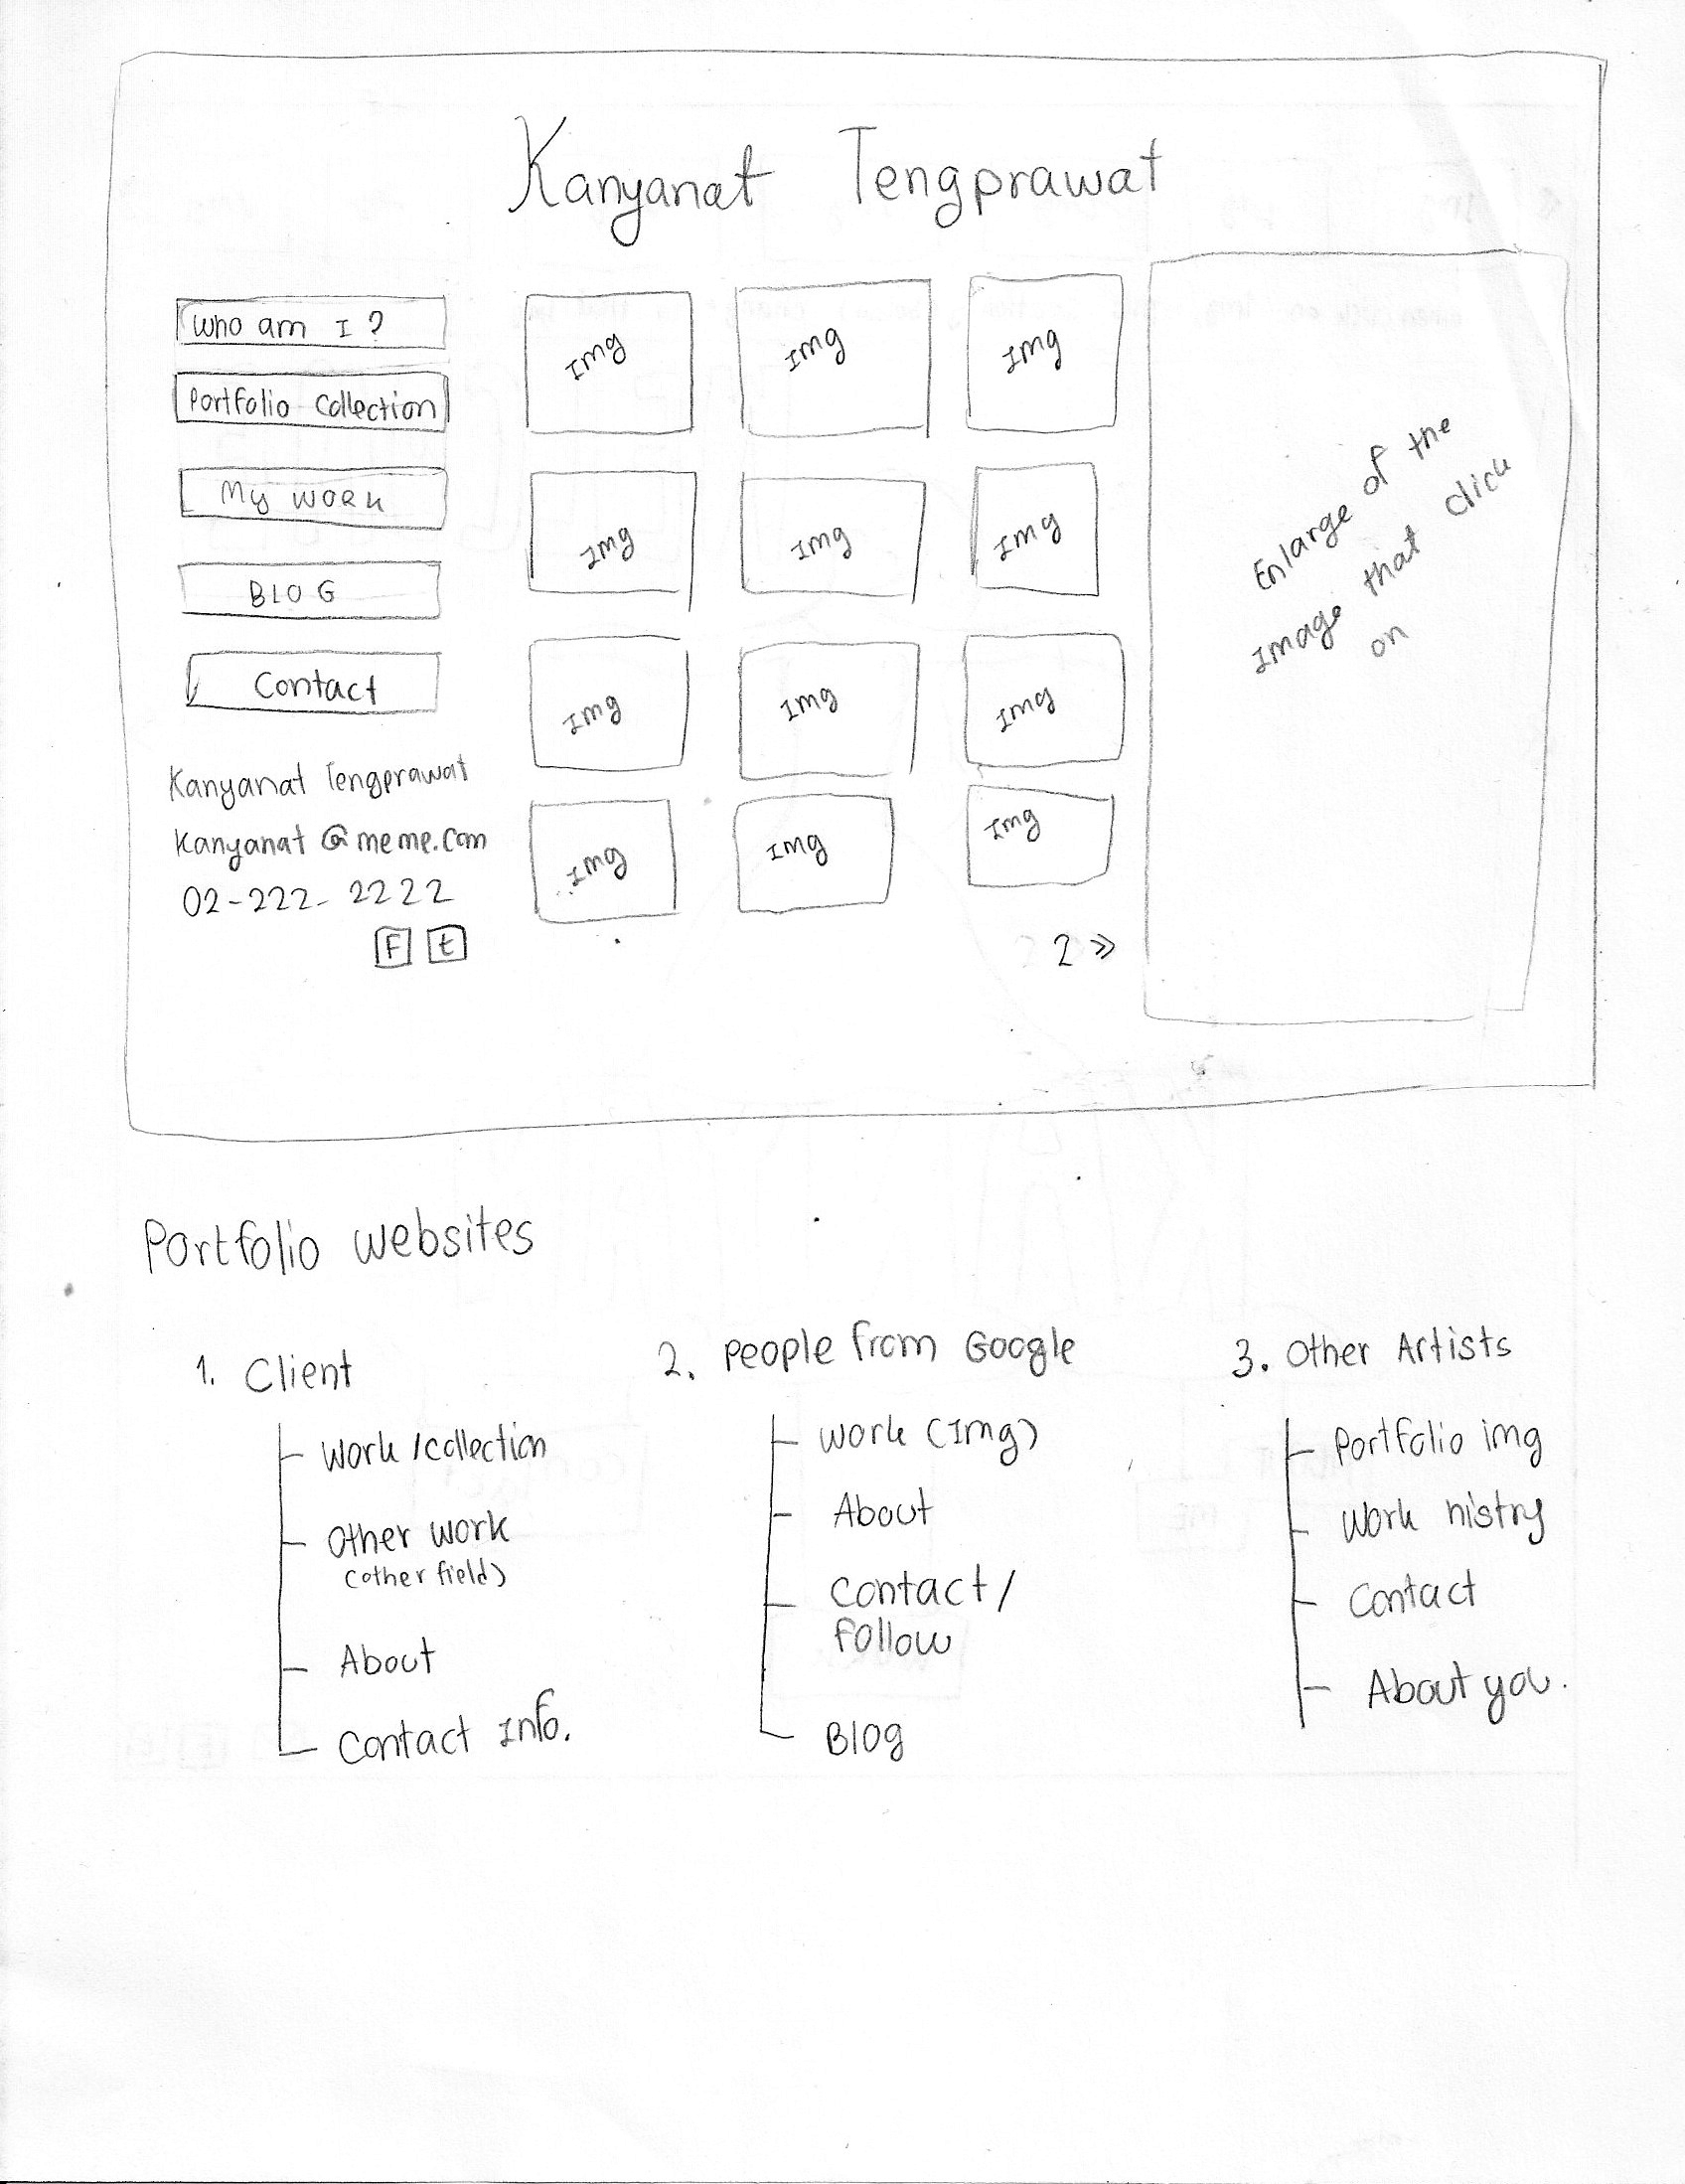 Kanyanat Tengprawat
Who am I ?
Portfolio Collection
My work
BLOG
Contact
Kanyanat Tengprawat
Kanyanat @meme.com
02-222-2222
F t
Img Img Img
Img Img Img
Img Img Img
Img Img Img
2 »
Enlarge of the
Image that click
on
Portfolio websites
1. Client
Work /collection
Other work
(other field)
About
Contact Info.
2. People from Google
Work (Img)
About
Contact/
Follow
Blog
3. Other Artists
Portfolio img
Work histry
Contact
About you.